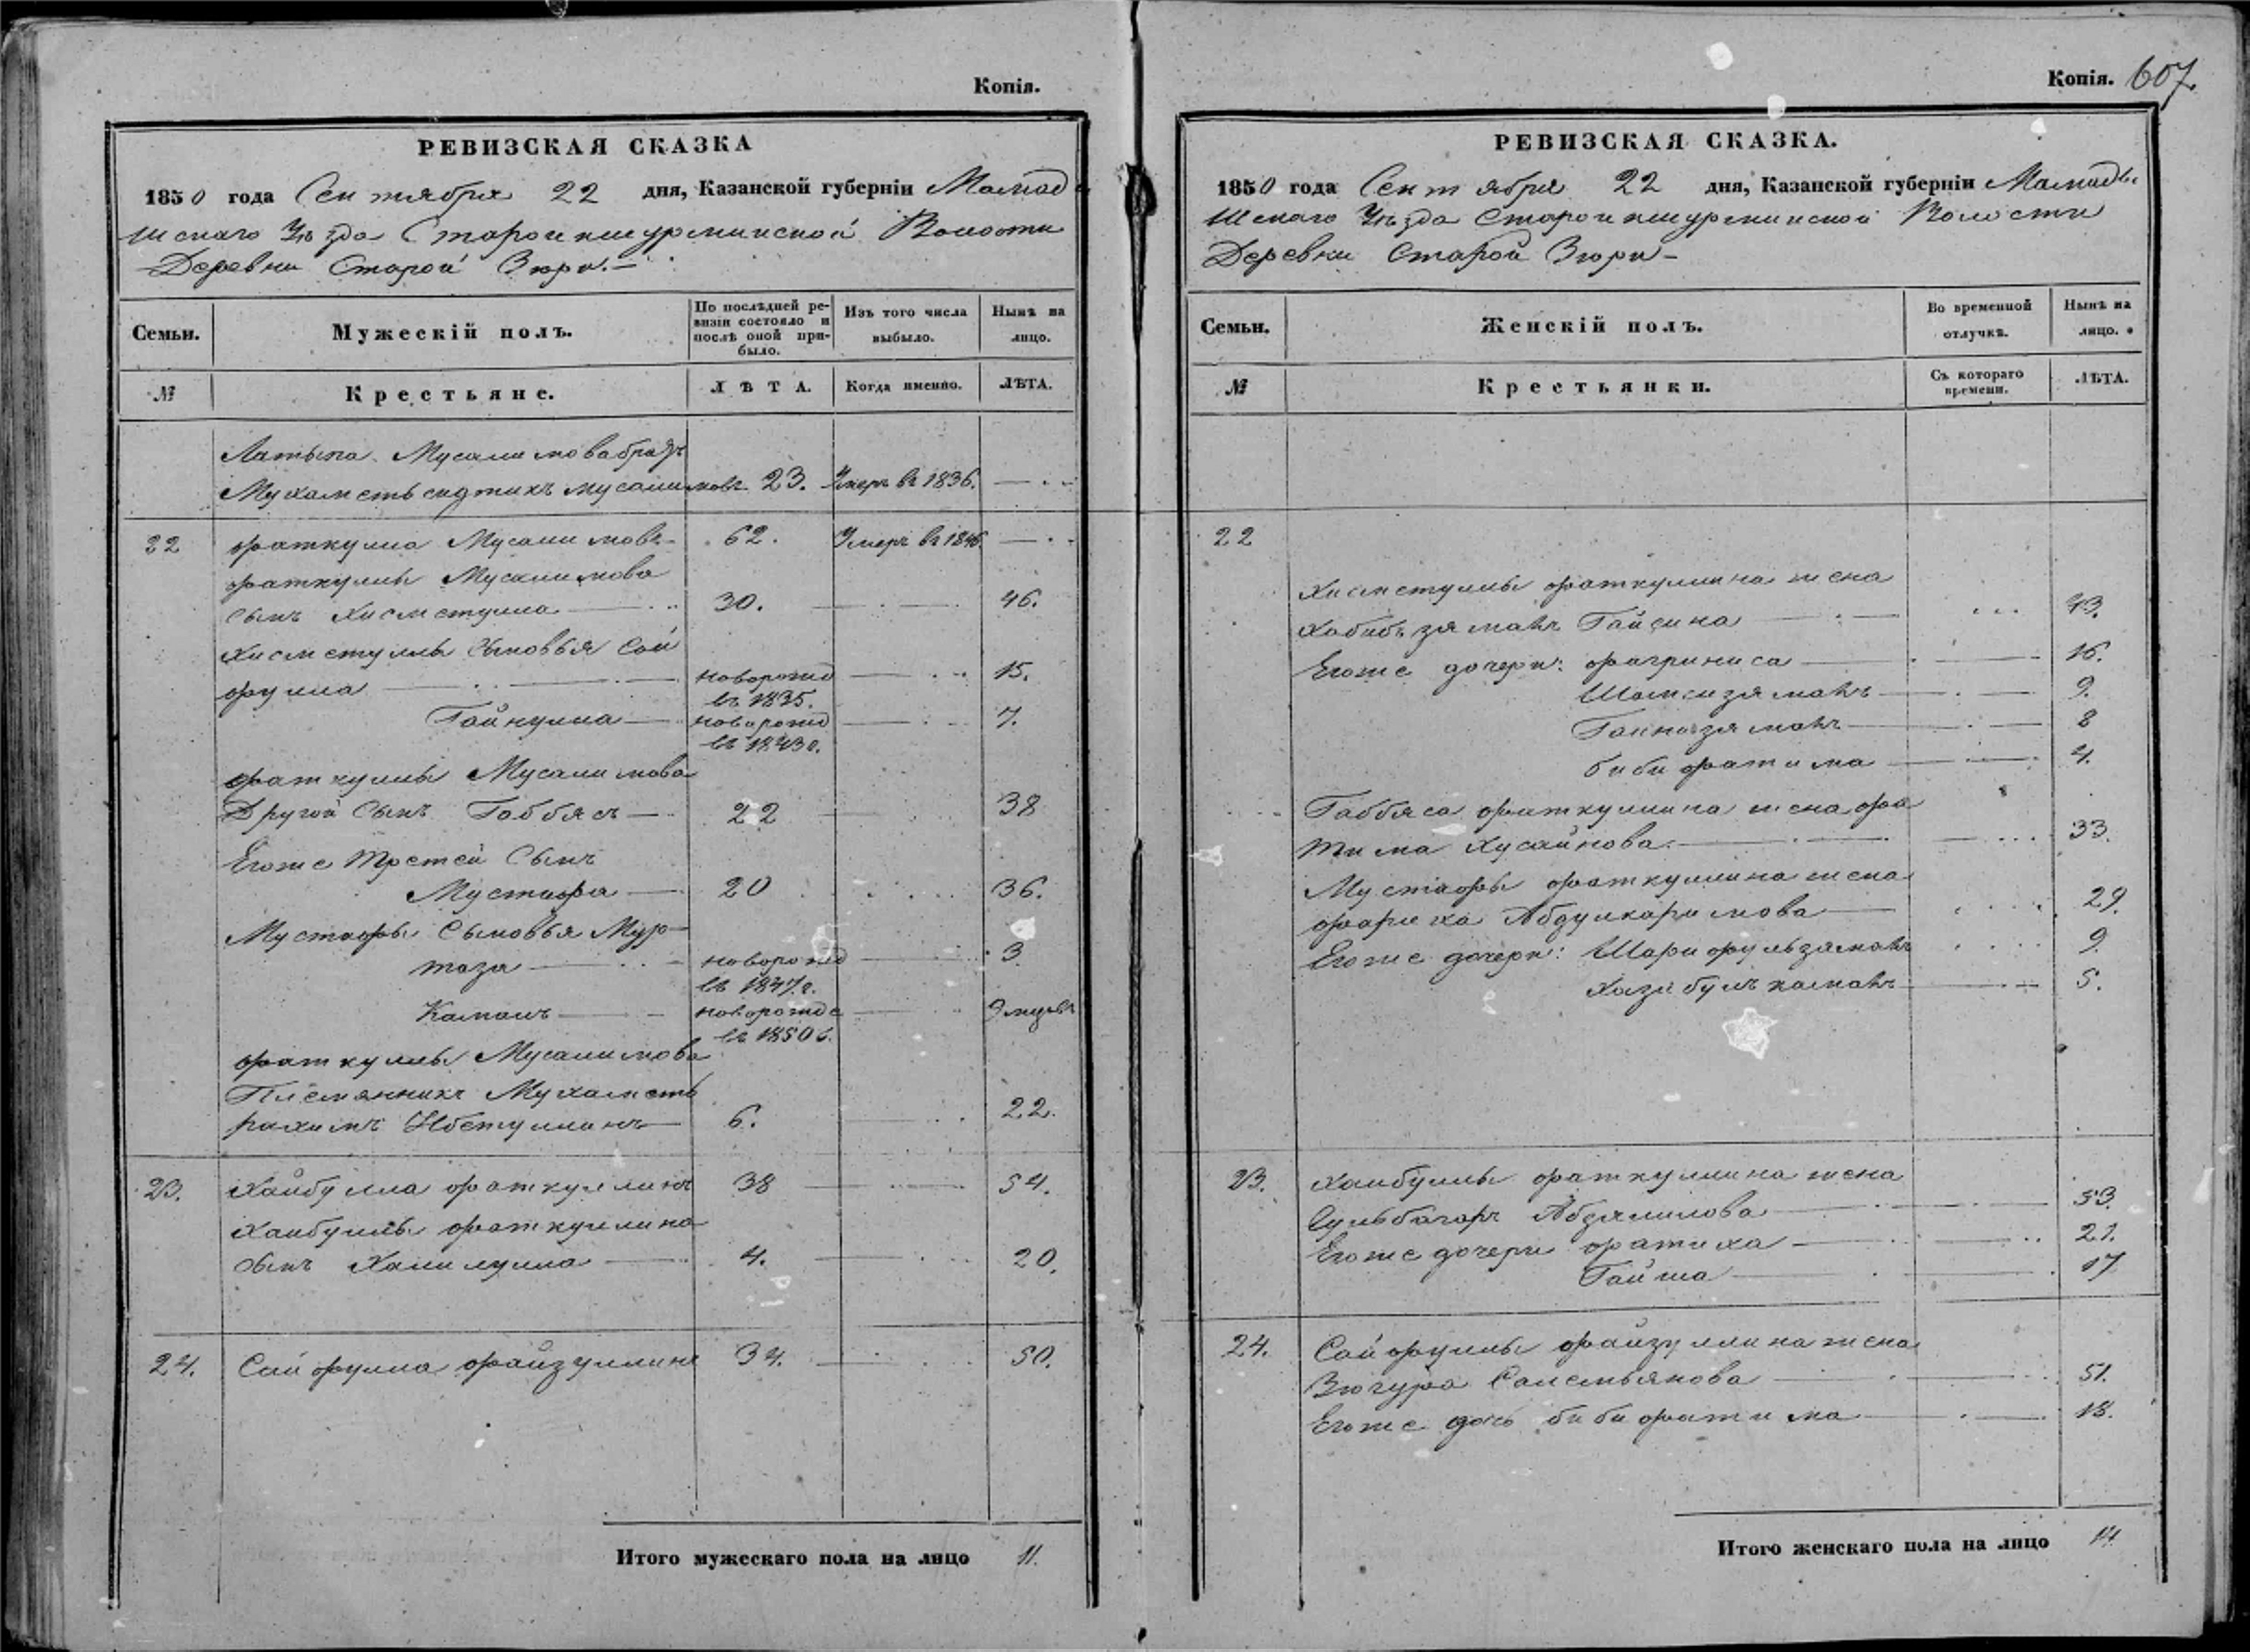 Копія.
РЕВИЗСКАЯ СКАЗКА
1850 года Сентября 22 дня, Казанской губерніи Мамады
шскаго Уѣзда Староикшурминской Волости
Деревни Старой Зюри.-
Семьи. Мужескій полъ. По послѣдней ревизіи состояло и послѣ оной прибыло. Изъ того числа выбыло. Нынѣ на лицо.
№ Крестьяне. ЛѢТА. Когда именно. ЛѢТА.
Латыпа Мусалимова братъ
Мухаметьсидтихъ Мусалимовъ 23. Умеръ въ 1836.
22 Фаткулла Мусалимовъ 62. Умеръ въ 1846.
Фаткуллы Мусалимова
сынъ Хисметулла 30. 46.
Хисметуллы Сыновья Сай
фулла новорожд въ 1835. 15.
Гайнулла новорожд въ 1843 г. 7.
Фаткуллы Мусалимова
Другой Сынъ Габбясъ 22 38
Егоже Третей Сынъ
Мустафа 20 36.
Мустафы Сыновья Мур-
таза новорожд въ 1847 г. 3
Камалъ новорожде въ 1850 г.
Фаткуллы Мусалимова
Племянникъ Мухаметь
рахимъ Ибетуллинъ 6. 22.
23. Хайбулла Фаткуллинъ 38 54.
Хайбуллы Фаткуллина
сынъ Халилулла 4. 20.
24. Сайфулла Файзуллинъ 34. 50.
Итого мужескаго пола на лицо 11.
Копія. 607.
РЕВИЗСКАЯ СКАЗКА.
1850 года Сентября 22 дня, Казанской губерніи Мамады
шскаго Уѣзда Староикшурминской Волости
Деревни Старой Зюри-
Семьи. Женскій полъ. Во временной отлучкѣ. Нынѣ на лицо.
№ Крестьянки. Съ котораго времени. ЛѢТА.
22
Хисметуллы Фаткуллина жена
Хабибъзяманъ Гайсина 43.
Егоже дочери: Фахриниса 16.
Шамсизяманъ 9.
Гайнизяманъ 8
биби Фатима 4.
Габбяса Фаткуллина жена Фа
тима Хусаинова 33.
Мустафы Фаткуллина жена
Фариха Абдулкаримова 29.
Егоже дочери: Шарифульзаманъ 9.
Хазибулъ 5.
23. Хайбуллы Фаткуллина жена
Гульбагаръ Абдялилова 53.
Егоже дочери Фатиха 21.
Гайша 17
24. Сайфуллы Файзуллина жена
Зюгура Салемьянова 51.
Егоже дочь биби Фатима 18.
Итого женскаго пола на лицо 14